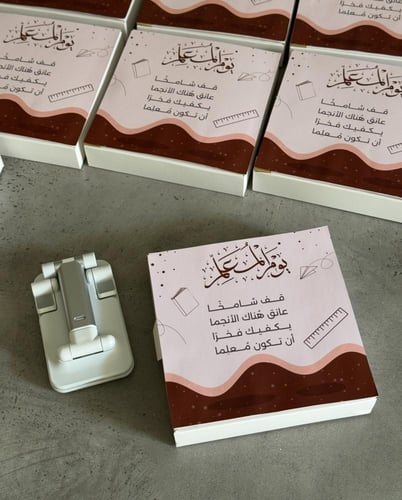 يوم المعلم
قف شامخًا
عانق هُناك الأنجما
يكفيك فخرًا
أن تكون مُعلما
يوم المعلم
قف شامخًا
عانق هُناك الأنجما
يكفيك فخرًا
أن تكون مُعلما
يوم المعلم
قف شامخًا
عانق هُناك الأنجما
يكفيك فخرًا
أن تكون مُعلما
يَوْمَ المُعَلِّمِ
قف شامخًا
عانق هُناك الأنجما
يكفيك فخرًا
أن تكون مُعلما